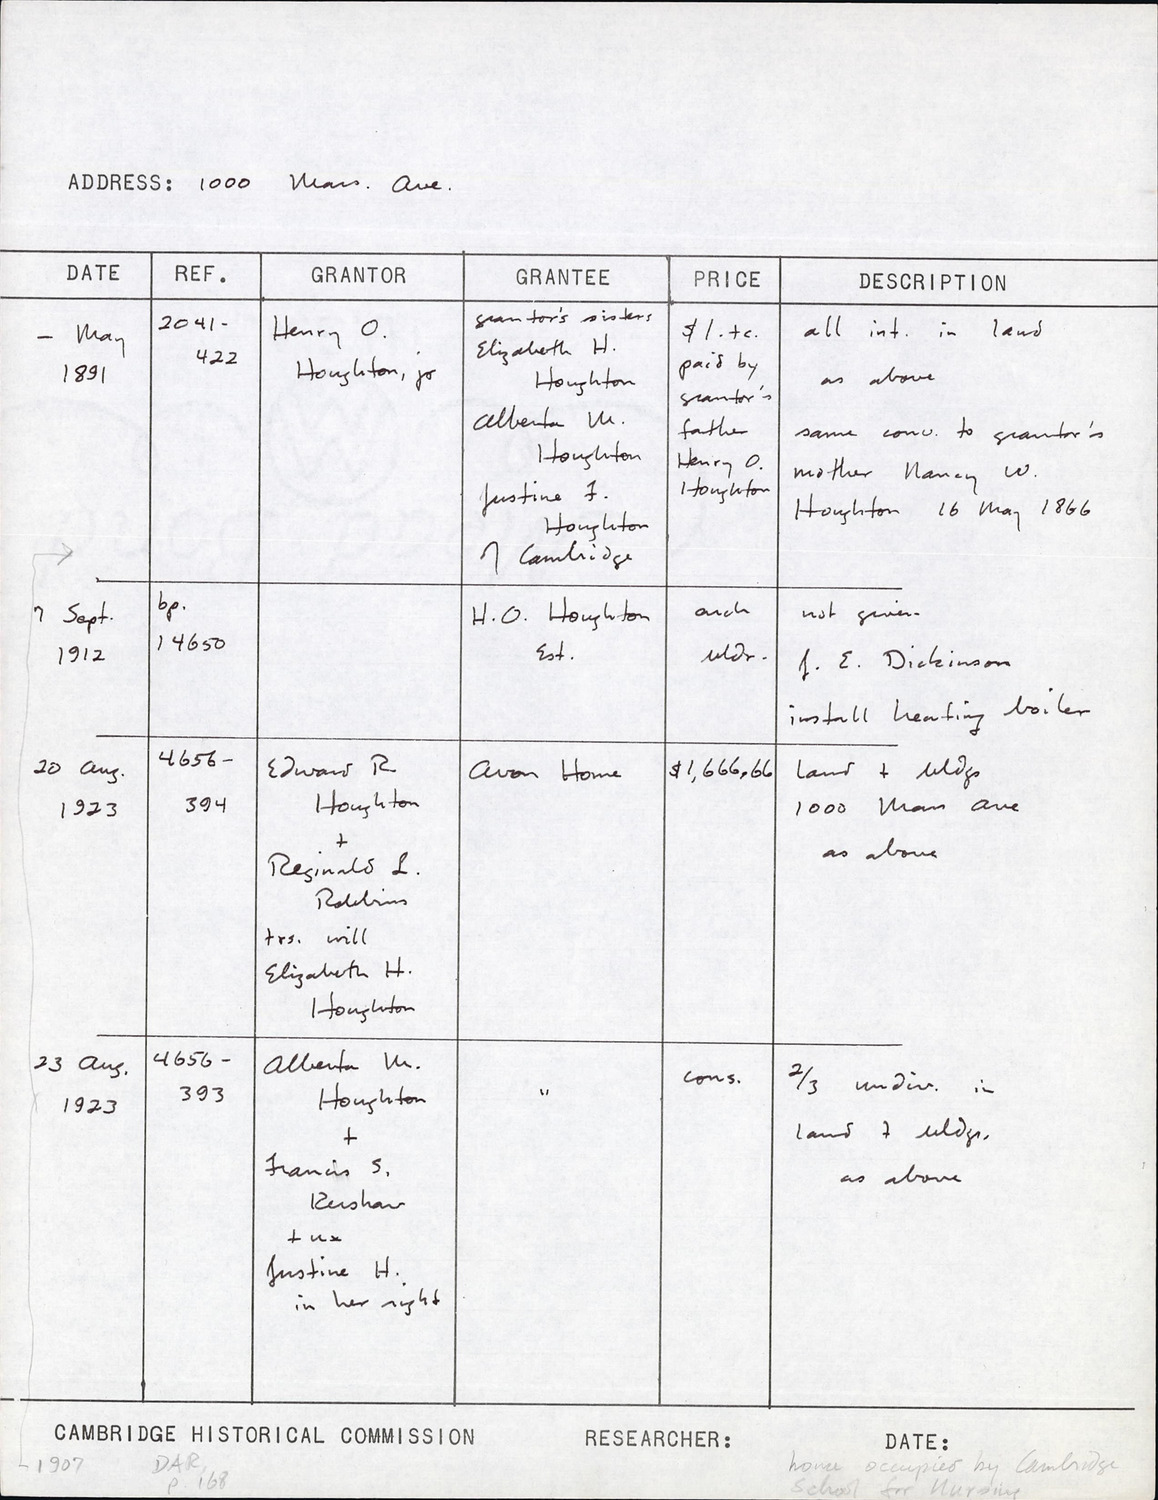 ADDRESS: 1000 Mass. Ave.
DATE REF. GRANTOR GRANTEE PRICE DESCRIPTION
– May
1891
2041-
422
Henry O.
Houghton, jr
grantor's sisters
Elizabeth H.
Houghton
Alberta M.
Houghton
Justine F.
Houghton
of Cambridge
$1. +c.
paid by
grantor's
father
Henry O.
Houghton
all int. in land
as above
same conv. to grantor's
mother Nancy W.
Houghton 16 May 1866
7 Sept.
1912
bp.
14650
H.O. Houghton
Est.
arch
bldr.
not given
J. E. Dickinson
install heating boiler
20 Aug.
1923
4656-
394
Edward R
Houghton
+
Reginald L.
Robbins
trs. will
Elizabeth H.
Houghton
Avon Home
$1,666.66
land + bldgs
1000 Mass Ave
as above
23 Aug.
1923
4656-
393
Alberta M.
Houghton
+
Francis S.
Kershaw
+ ux
Justine H.
in her right
"
cons.
2/3 undiv. in
land + bldgs.
as above
CAMBRIDGE HISTORICAL COMMISSION RESEARCHER: DATE:
1907 DAR,
p. 168
house occupied by Cambridge
School for Nursing